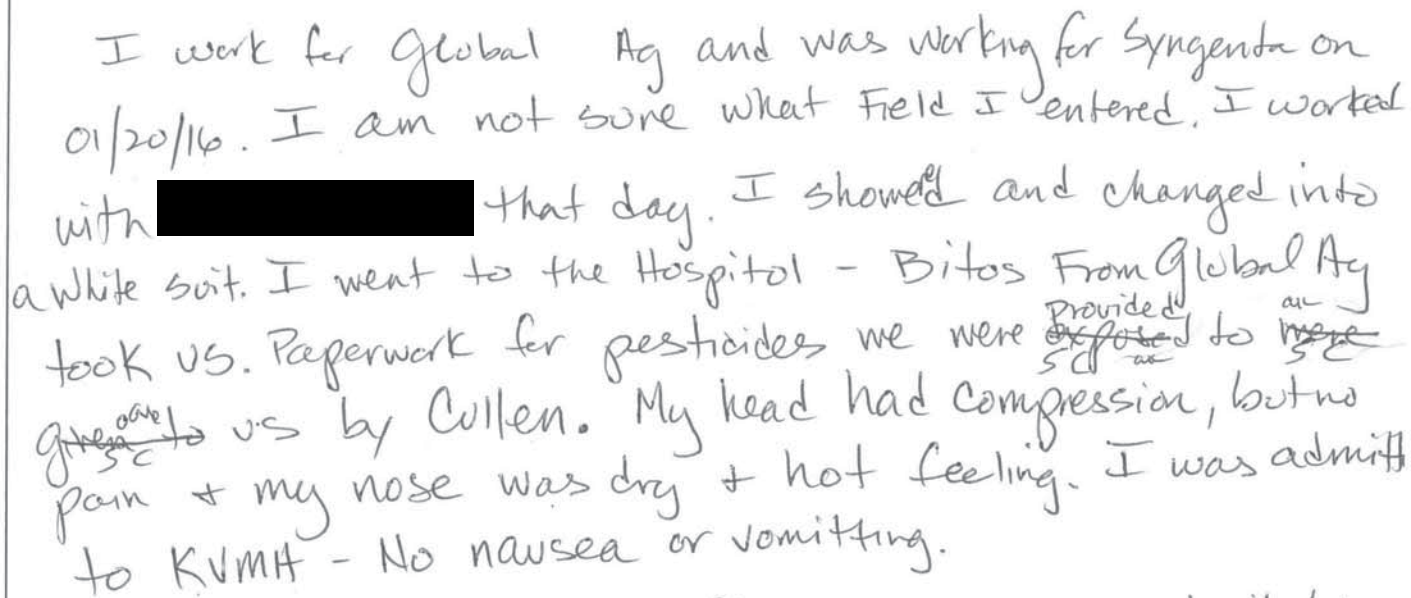 I work for Global Ag and was working for Syngenta on
01/20/16. I am not sure what Field I entered. I worked
with that day. I showed and changed into
a white suit. I went to the Hospitol - Bitos From Global Ag
took us. Paperwork for pesticides we were provided exposed to were
SC SC
given to us by Cullen. My head had compression, but no
SC
pain + my nose was dry + hot feeling. I was admitt
to KVMH - No nausea or vomitting.